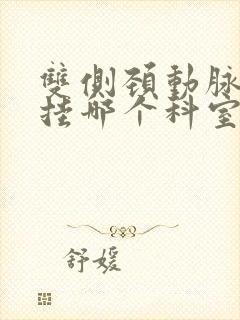 雙側頚動脉
挂哪个科室
舒媛